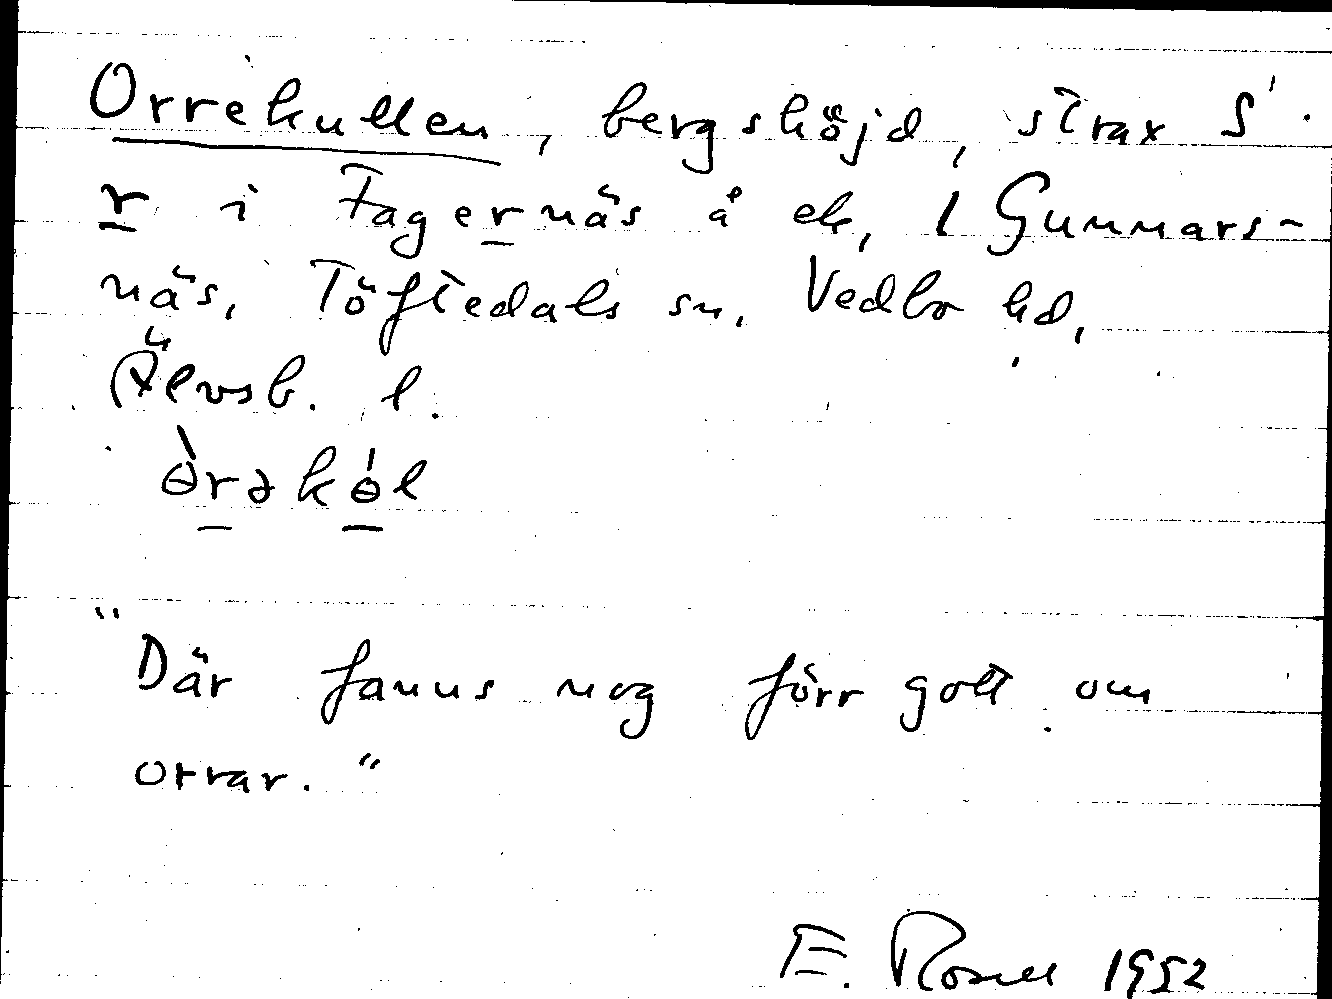 Orrekullen, bergshöjd, strax S
r i Fagernäs å ek, 1 Gunnars-
näs, Töftedals sn, Vedbo hd,
Älvsb. l.
ɵ̀rəkɵ́l
"Där fanns nog förr gott om
orrar."
E. Rosell 1952